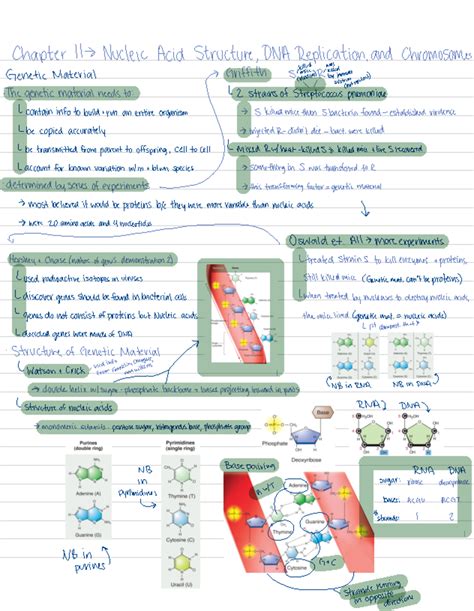 Chapter 11→ Nucleic Acid Structure, DNA Replication, and Chromosomes
Genetic Material
The genetic material needs to:
contain info to build + run an entire organism
be copied accurately
be transmitted from parent to offspring, cell to cell
account for known variation w/in + b/wn species
determined by series of experiments
→ most believed it would be proteins b/c they were more variable than nucleic acids
→ were 20 amino acids and 4 nucleotides
Griffith
2 strains of Streptococcus pneumoniae
S killed mice then S bacteria found - established virulence
injected R - didn't die - bact. were killed
Mixed R w/ heat-killed S → killed mice + live S recovered
→ something in S was transferred to R
→ this transforming factor = genetic material
Oswald et. All → more experiments
treated strain S to kill enzymes + proteins
still killed mice (Genetic mat. can't be proteins)
when treated by nucleases to destroy nucleic acids,
the mice lived (genetic mat. = nucleic acids)
Hershey + Chase (nature of gen's demonstration 2)
used radioactive isotopes in viruses
discover genes should be found in bacterial cells
genes do not consist of proteins but nucleic acids
decided genes were made of DNA
Structure of Genetic Material
Watson + Crick
→ double helix w/ sugar-phosphate backbone + bases projecting inward in pairs
structure of nucleic acids
→ monomeric subunits - pentose sugar, nitrogenous base, phosphate groups
NB in RNA
NB in DNA
Purines
(double ring)
Adenine (A)
Guanine (G)
NB in purines
Pyrimidines
(single ring)
Thymine (T)
Cytosine (C)
Uracil (U)
NB in pyrimidines
Phosphate
Base
Deoxyribose
RNA DNA
Base pairing
A+T
G+C
Adenine
Thymine
Guanine
Cytosine
strands running in opposite direction
RNA DNA
sugar: ribose deoxyribose
base: ACGU ACGT
strands: 1 2